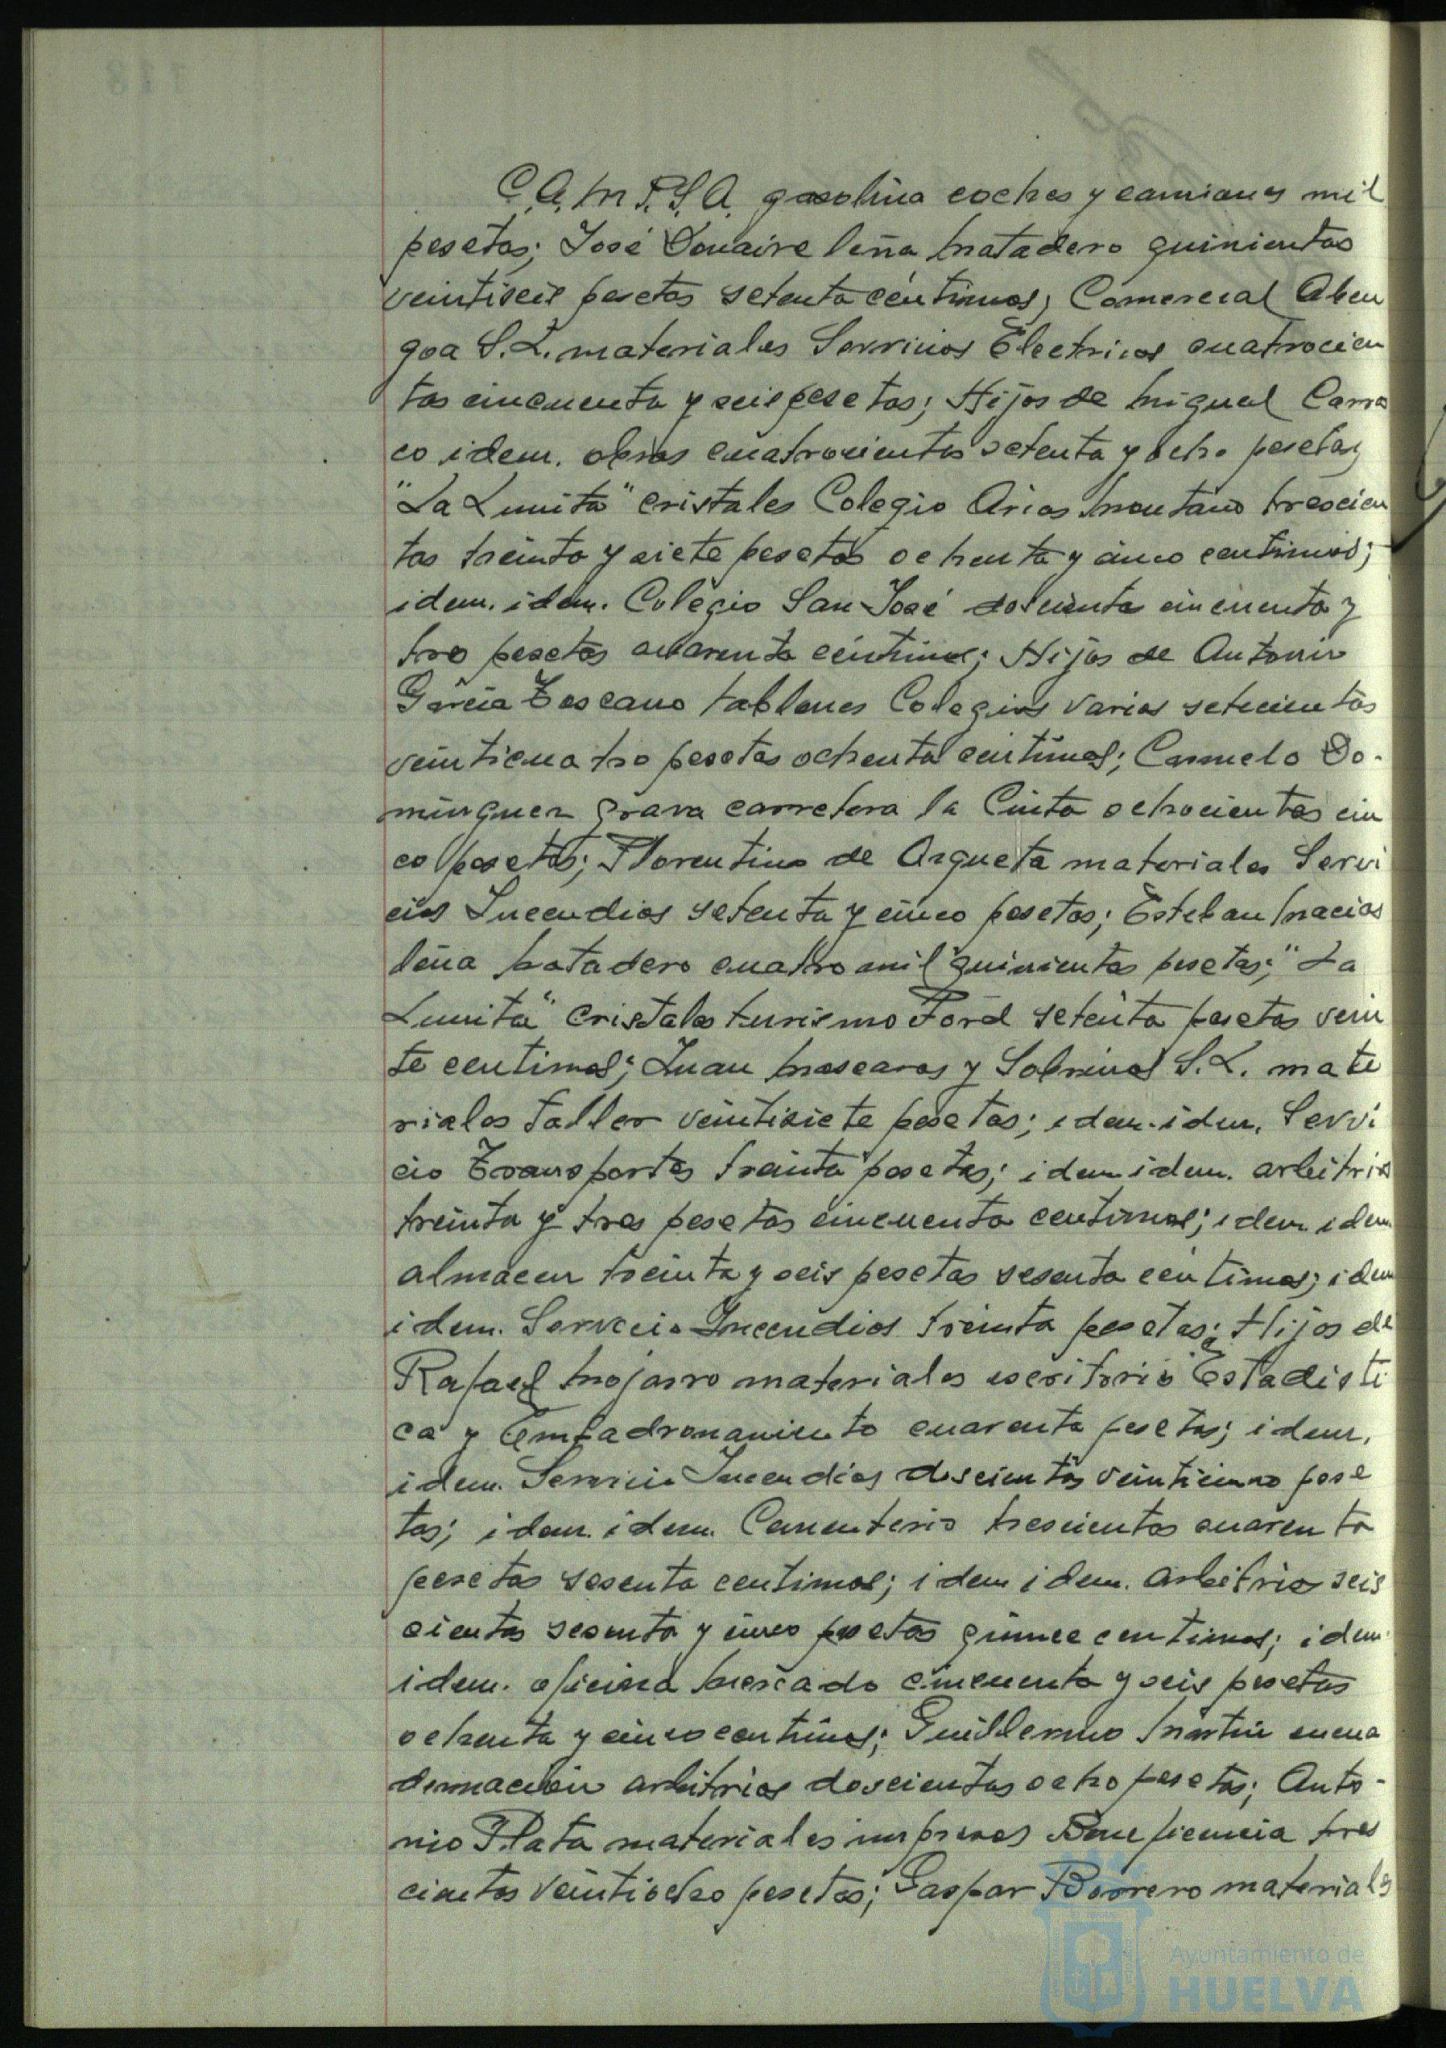 C.A.M.P.S.A. gasolina coches y camiones mil
pesetas; José Donaire leña Matadero quinientas
veintiseis pesetas setenta céntimos; Comercial Aben
goa S.L. materiales Servicios Electricos cuatrocien
tas cincuenta y seis pesetas; Hijos de Miguel Carras
co idem. obras cuatrocientas setenta y ocho pesetas;
"La Lunita" cristales Colegio Arias Montano trescien
tas treinta y siete pesetas ochenta y cinco centimos;
idem. idem. Colegio San José doscientas cincuenta y
tres pesetas cuarenta céntimos; Hijos de Antonio
Garcia Toscano tablones Colegios varios setecientas
veinticuatro pesetas ochenta centimos; Carmelo Do-
minguez grava carretera la Cinta ochocientas cin
co pesetas; Florentino de Azqueta materiales Servi
cios Incendios setenta y cinco pesetas; Esteban Macias
leña Matadero cuatro mil quinientas pesetas; "La
Lunita" cristales turismo Ford setenta pesetas vein
te centimos; Juan Mascaros y Sobrinos S.L. mate
riales taller veintisiete pesetas; idem. idem. Servi
cio Transportes treinta pesetas; idem idem. arbitrios
treinta y tres pesetas cincuenta centimos; idem idem
almacen treinta y seis pesetas sesenta céntimos; idem
idem. Servicio Incendios treinta pesetas; Hijos de
Rafael Mojarro materiales escritorio Estadisti
ca y Empadronamiento cuarenta pesetas; idem.
idem. Servicio Incendios doscientas veinticinco pese
tas; idem. idem. Cementerio trescientas cuarenta
pesetas sesenta centimos; idem idem. arbitrios seis
cientas sesenta y cinco pesetas quince centimos; idem.
idem. oficina Mercado cincuenta y seis pesetas
ochenta y cinco centimos; Guillermo Martin encua
dernación arbitrios doscientas ocho pesetas; Anto-
nio Plata materiales impresos Beneficencia tres
cientas veintiocho pesetas; Gaspar Borrero materiales
Ayuntamiento de
HUELVA